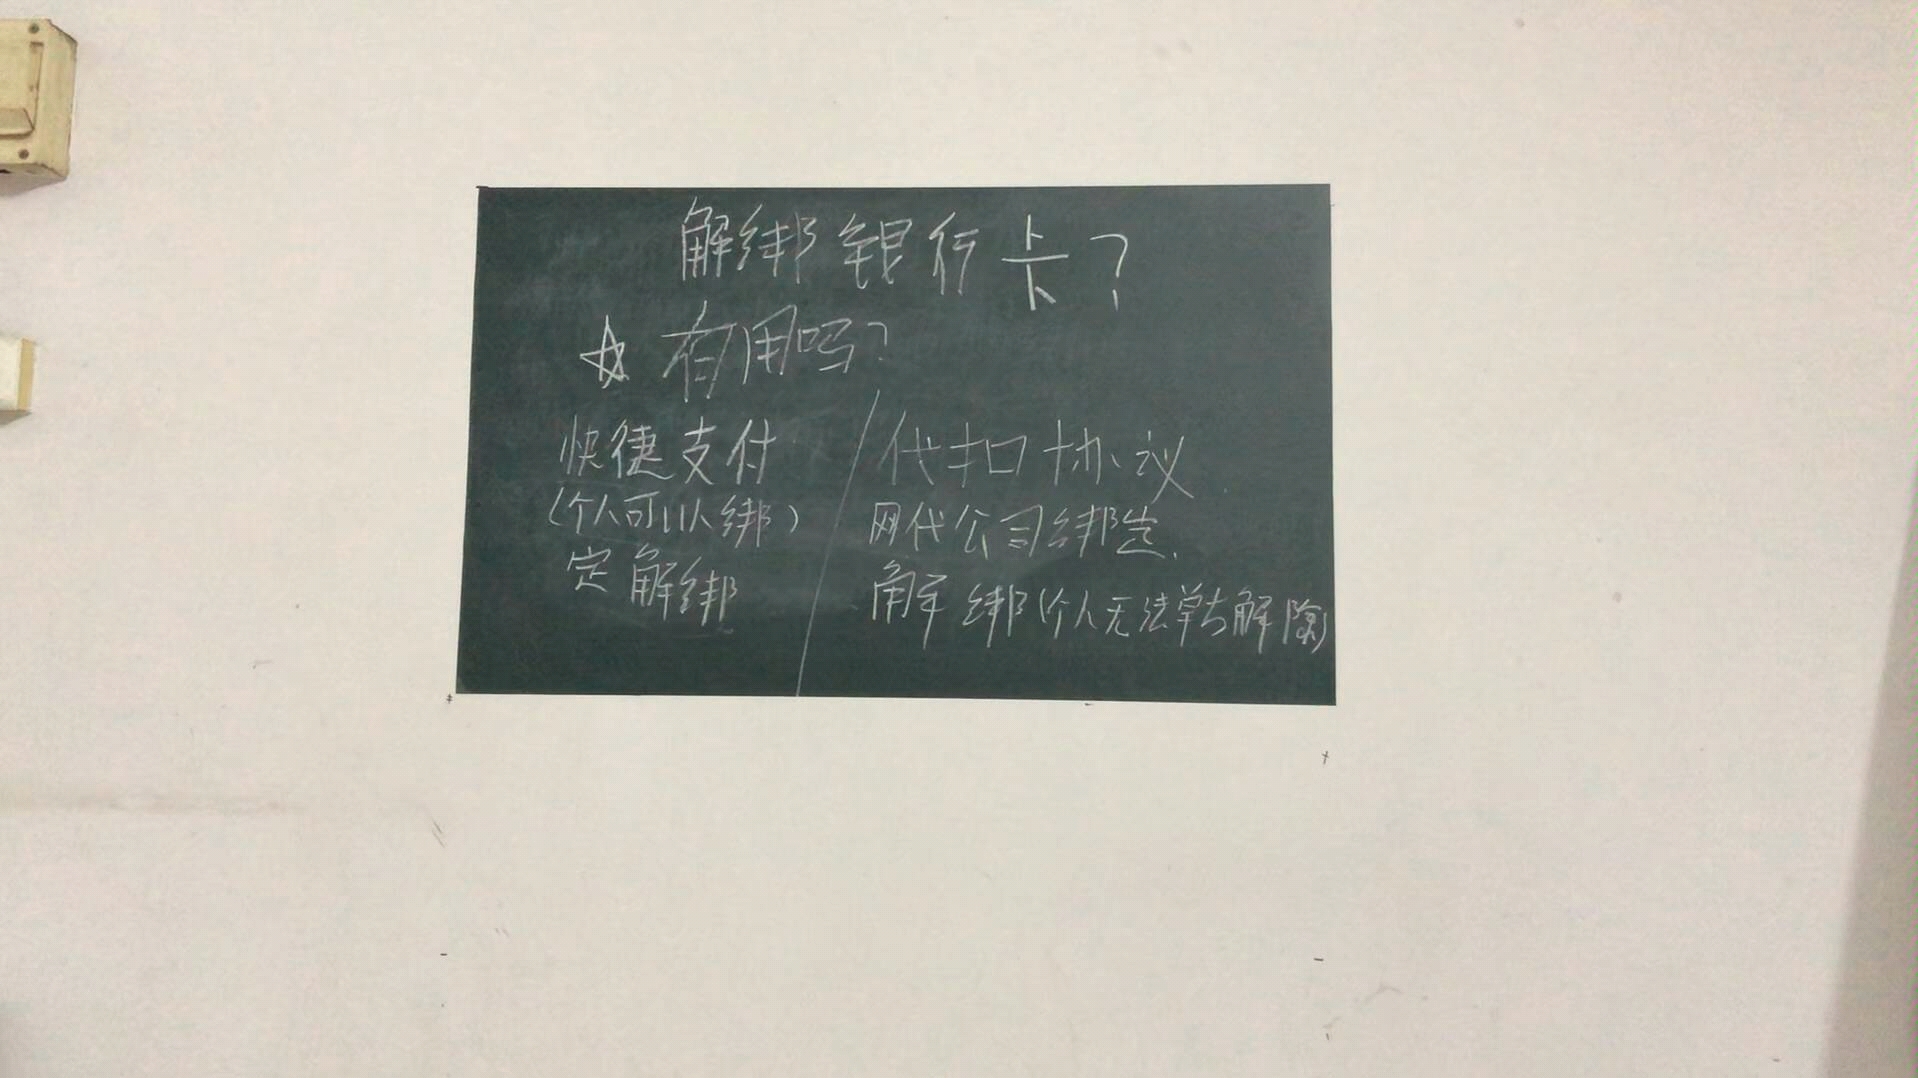 解绑银行卡?
☆ 有用吗?
快捷支付
(个人可以绑)
定解绑
代扣协议
网代公司绑定
解绑(个人无法单方解除)